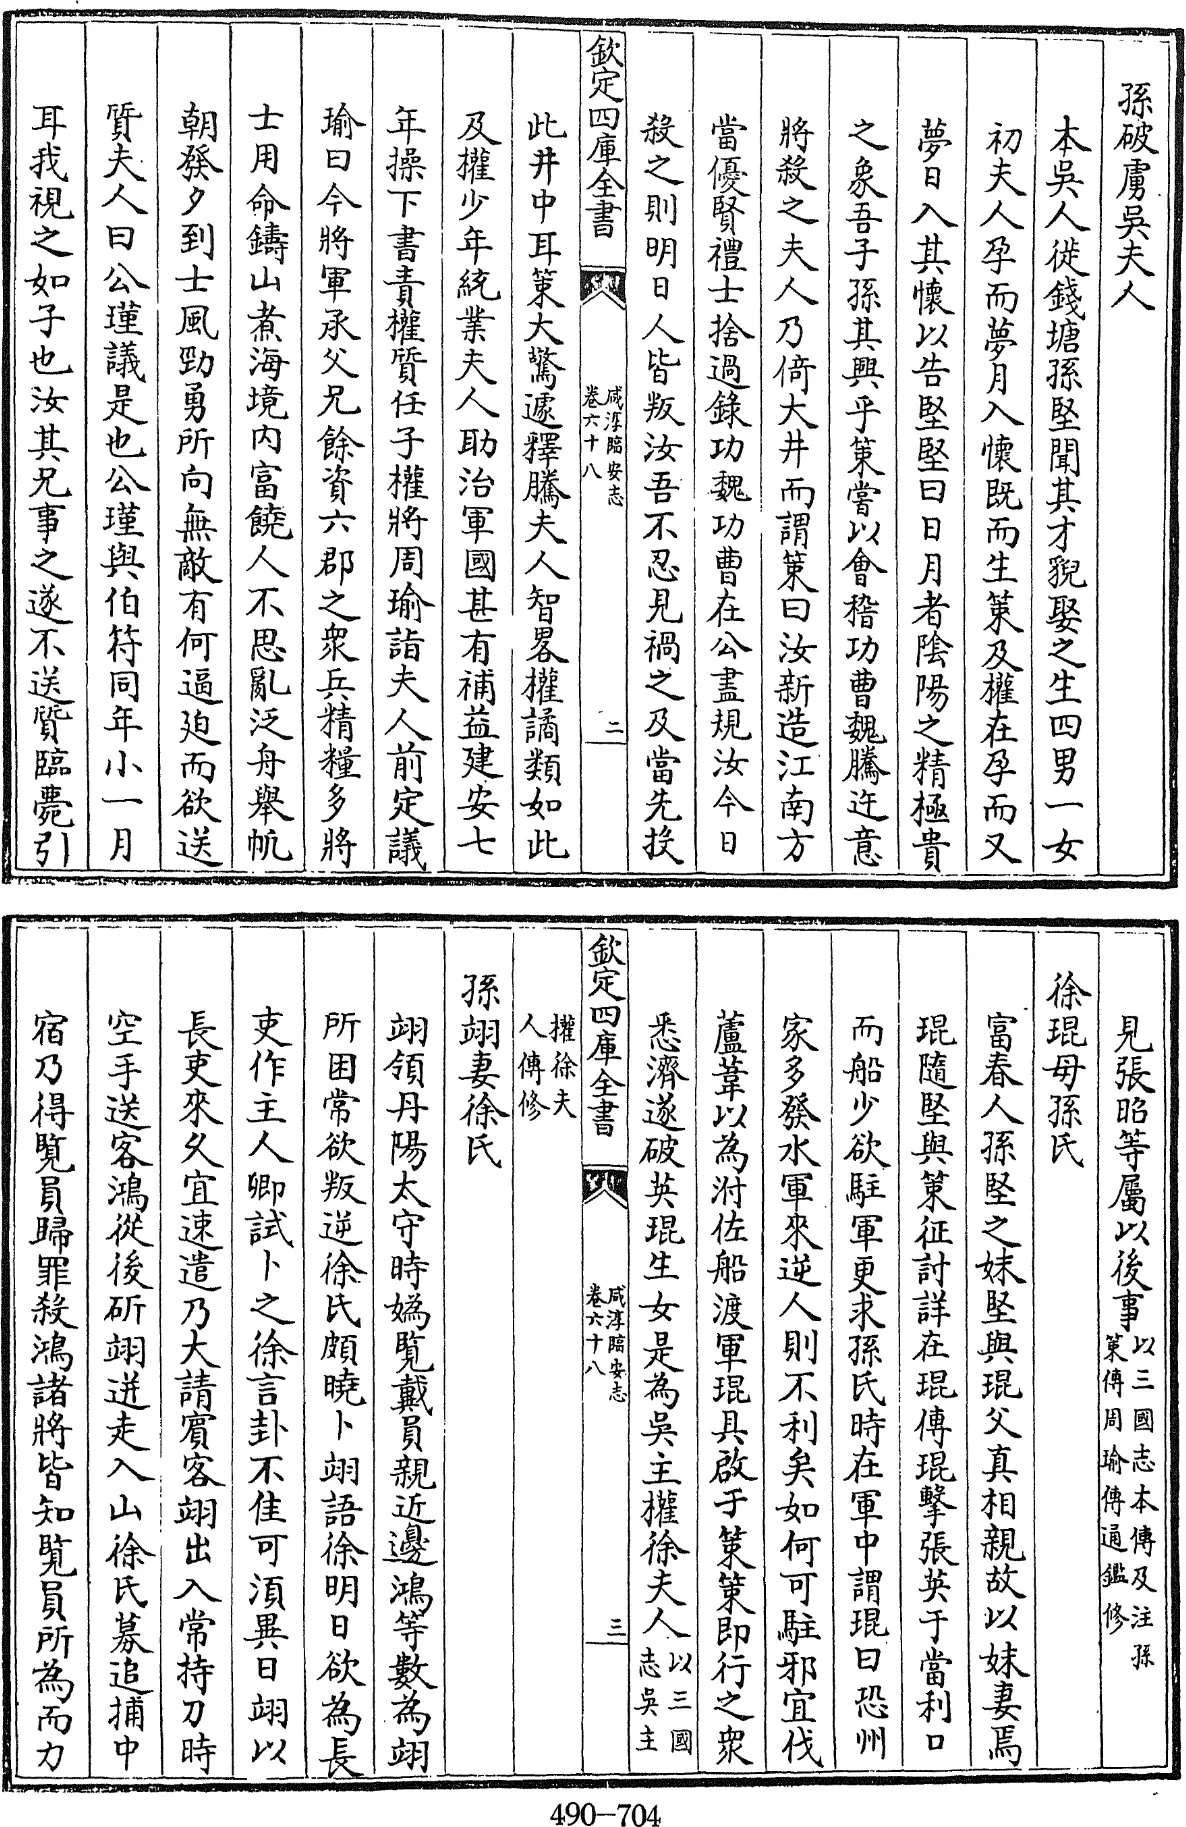 孫破虜吳夫人
本吳人徙錢塘孫堅聞其才貌娶之生四男一女
初夫人孕而夢月入懷既而生策及權在孕而又
夢日入其懷以告堅堅曰日月者陰陽之精極貴
之象吾子孫其興乎策嘗以會稽功曹魏騰迕意
將殺之夫人乃倚大井而謂策曰汝新造江南方
當優賢禮士捨過錄功魏功曹在公盡規汝今日
殺之則明日人皆叛汝吾不忍見禍之及當先投
欽定四庫全書
咸淳臨安志
卷六十八
二
此井中耳策大驚遽釋騰夫人智畧權譎類如此
及權少年統業夫人助治軍國甚有補益建安七
年操下書責權質任子權將周瑜詣夫人前定議
瑜曰今將軍承父兄餘資六郡之衆兵精糧多將
士用命鑄山煮海境內富饒人不思亂泛舟舉帆
朝發夕到士風勁勇所向無敵有何逼廹而欲送
質夫人曰公瑾議是也公瑾與伯符同年小一月
耳我視之如子也汝其兄事之遂不送質臨薨引
見張昭等屬以後事以三國志本傳及注孫
策傳周瑜傳通鑑修
徐琨母孫氏
富春人孫堅之妹堅與琨父真相親故以妹妻焉
琨隨堅與策征討詳在琨傳琨擊張英于當利口
而船少欲駐軍更求孫氏時在軍中謂琨曰恐州
家多發水軍來逆人則不利矣如何可駐邪宜伐
蘆葦以為泭佐船渡軍琨具啟于策策即行之衆
悉濟遂破英琨生女是為吳主權徐夫人以三國
志吳主
欽定四庫全書
咸淳臨安志
卷六十八
三
權徐夫
人傳修
孫翊妻徐氏
翊領丹陽太守時媯覽戴員親近邊鴻等數為翊
所困常欲叛逆徐氏頗曉卜翊語徐明日欲為長
吏作主人卿試卜之徐言卦不佳可湏異日翊以
長吏來久宜速遣乃大請賓客翊出入常持刀時
空手送客鴻從後斫翊迸走入山徐氏募追捕中
宿乃得覽員歸罪殺鴻諸將皆知覽員所為而力
490-704